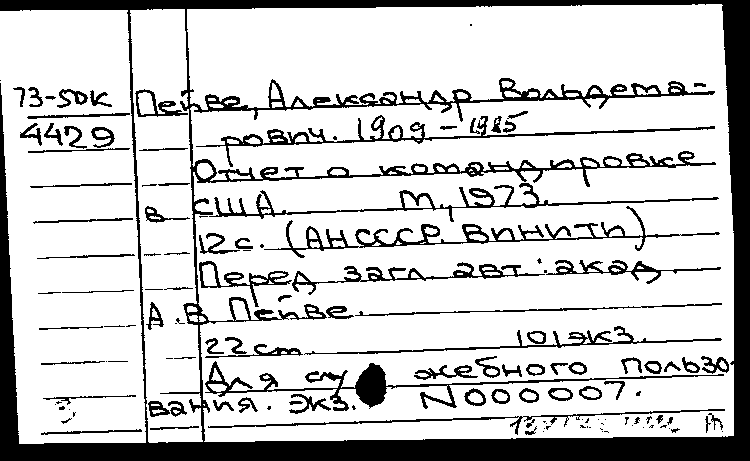 73-50К Пейве, Александр Вольдема-
4429 рович. 1909-1985
Отчет о командировке
в США. М., 1973.
12 с. (АН СССР. ВИНИТИ).
Перед загл. авт.: акад.
А.В. Пейве.
22 cm. 101 экз.
Для служебного пользо-
вания. Экз. N000007.